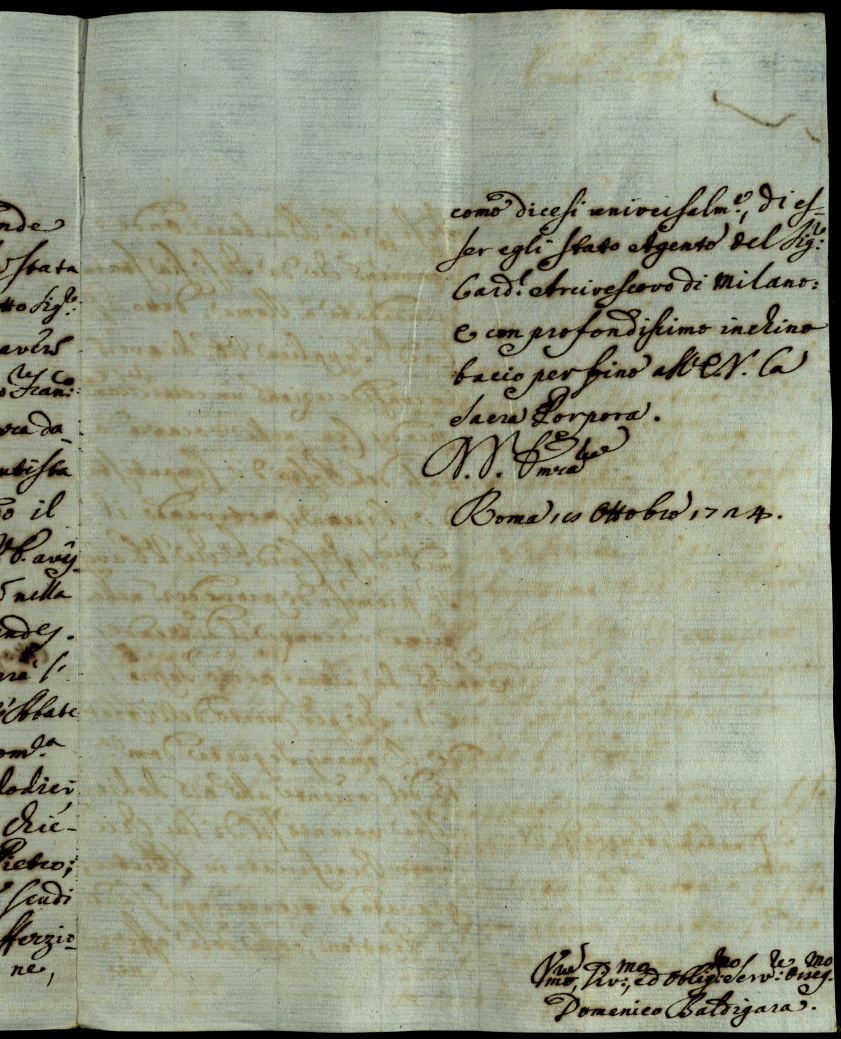 nde
stata
tto Sig.re
avers
Fran.co
da-
utista
o il
avej
nella
ndej.
Abbate
om.da
lodier
chie-
Pietro;
scudi
fferzio=
ne,
come dicesi univeisalm.e, di es=
ser egli stato Agente del Sig.re
Card.l Arcivescovo di Milano:
e con profondissimo inchino
bacio per fine all' E.V. la
Sacra Porpora.
V. S. Em.ra
Roma 10 Ottobre 1724.
Vmo, Div.mo, ed oblig.mo Serv.re osseq.mo
Domenico Baldigara.